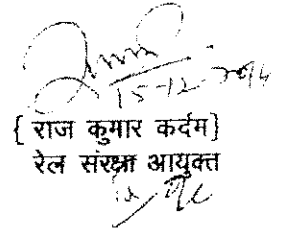 15-12-2014
{ राज कुमार कर्दम}
रेल संरक्षा आयुक्त